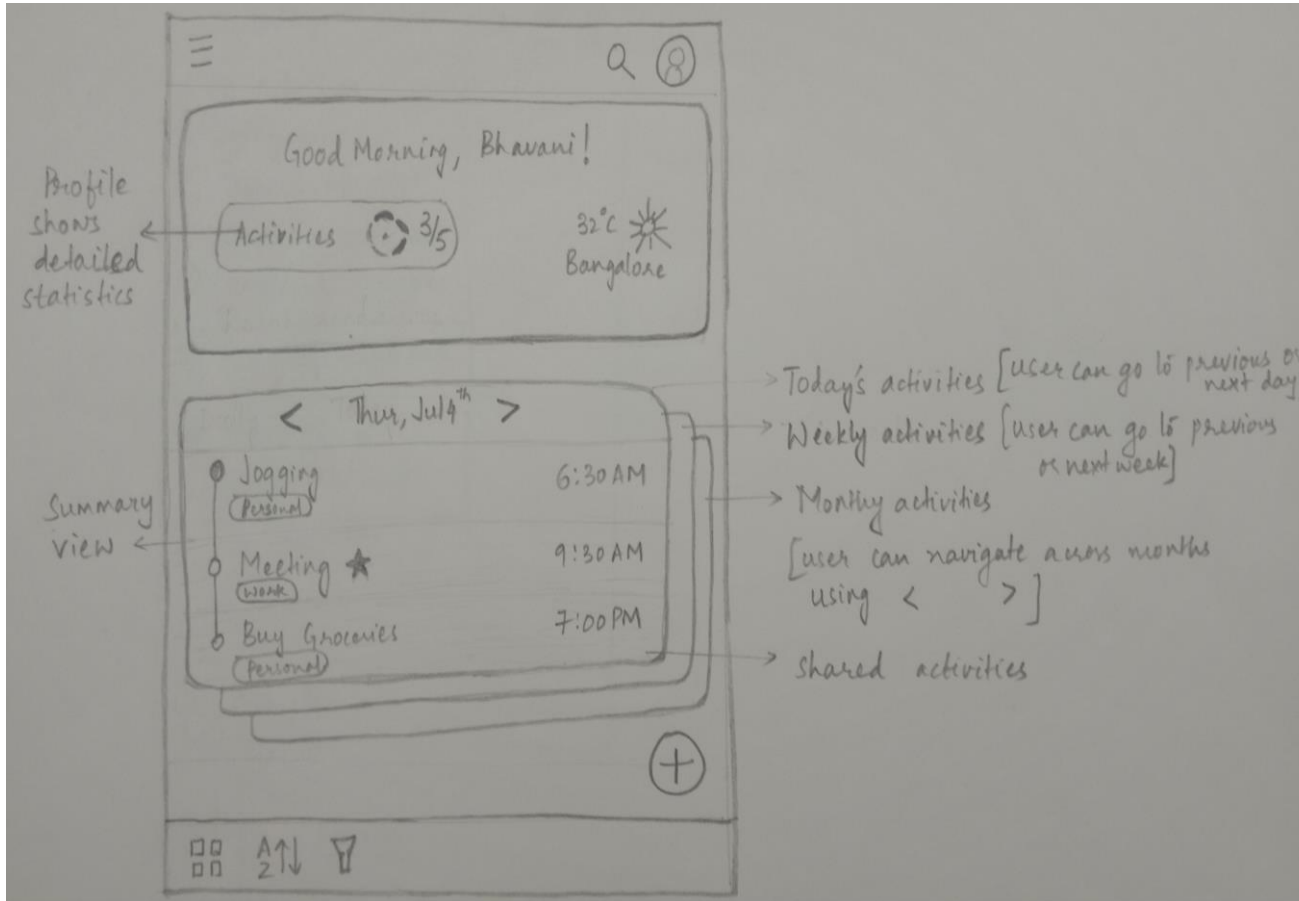 Good Morning, Bhavani!
Profile
shows
detailed
statistics
Activities 3/5
32°C
Bangalore
Thur, Jul 4th
Jogging 6:30 AM
Personal
Meeting 9:30 AM
Work
Buy Groceries 7:00 PM
Personal
Summary
view
Today's activities [user can go to previous or
next day
Weekly activities [user can go to previous
or next week]
Monthy activities
[user can navigate across months
using < >]
Shared activities
A
Z